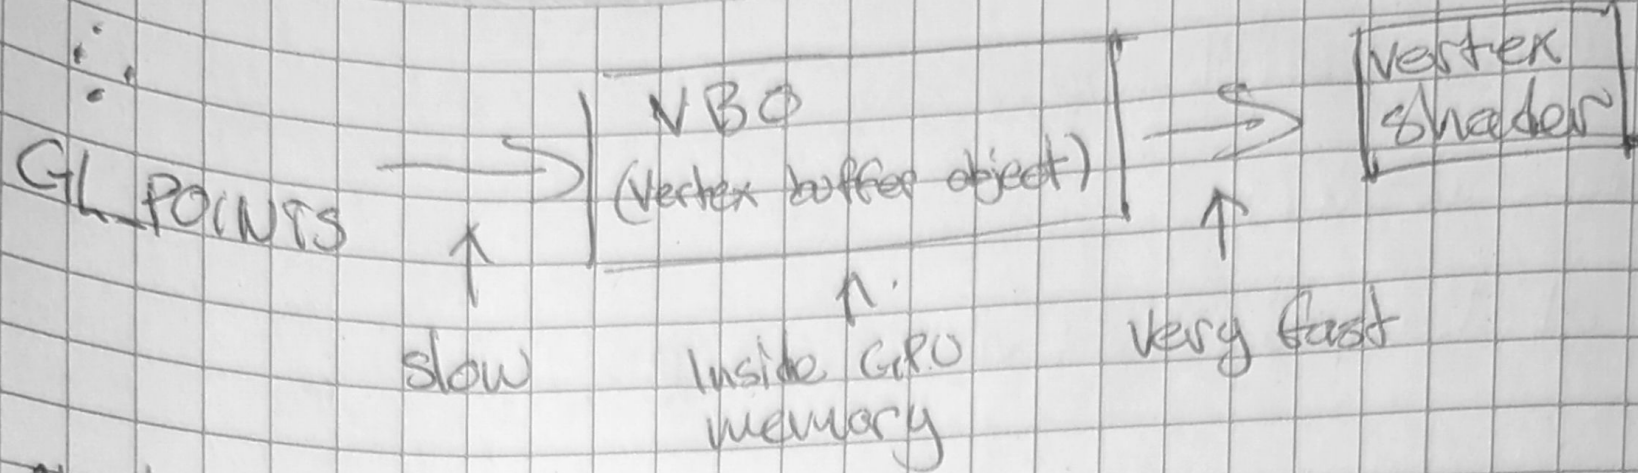 GL_POINTS
VBO
(Vertex buffer object)
Vertex
Shader
slow
Inside GPU
memory
Very fast